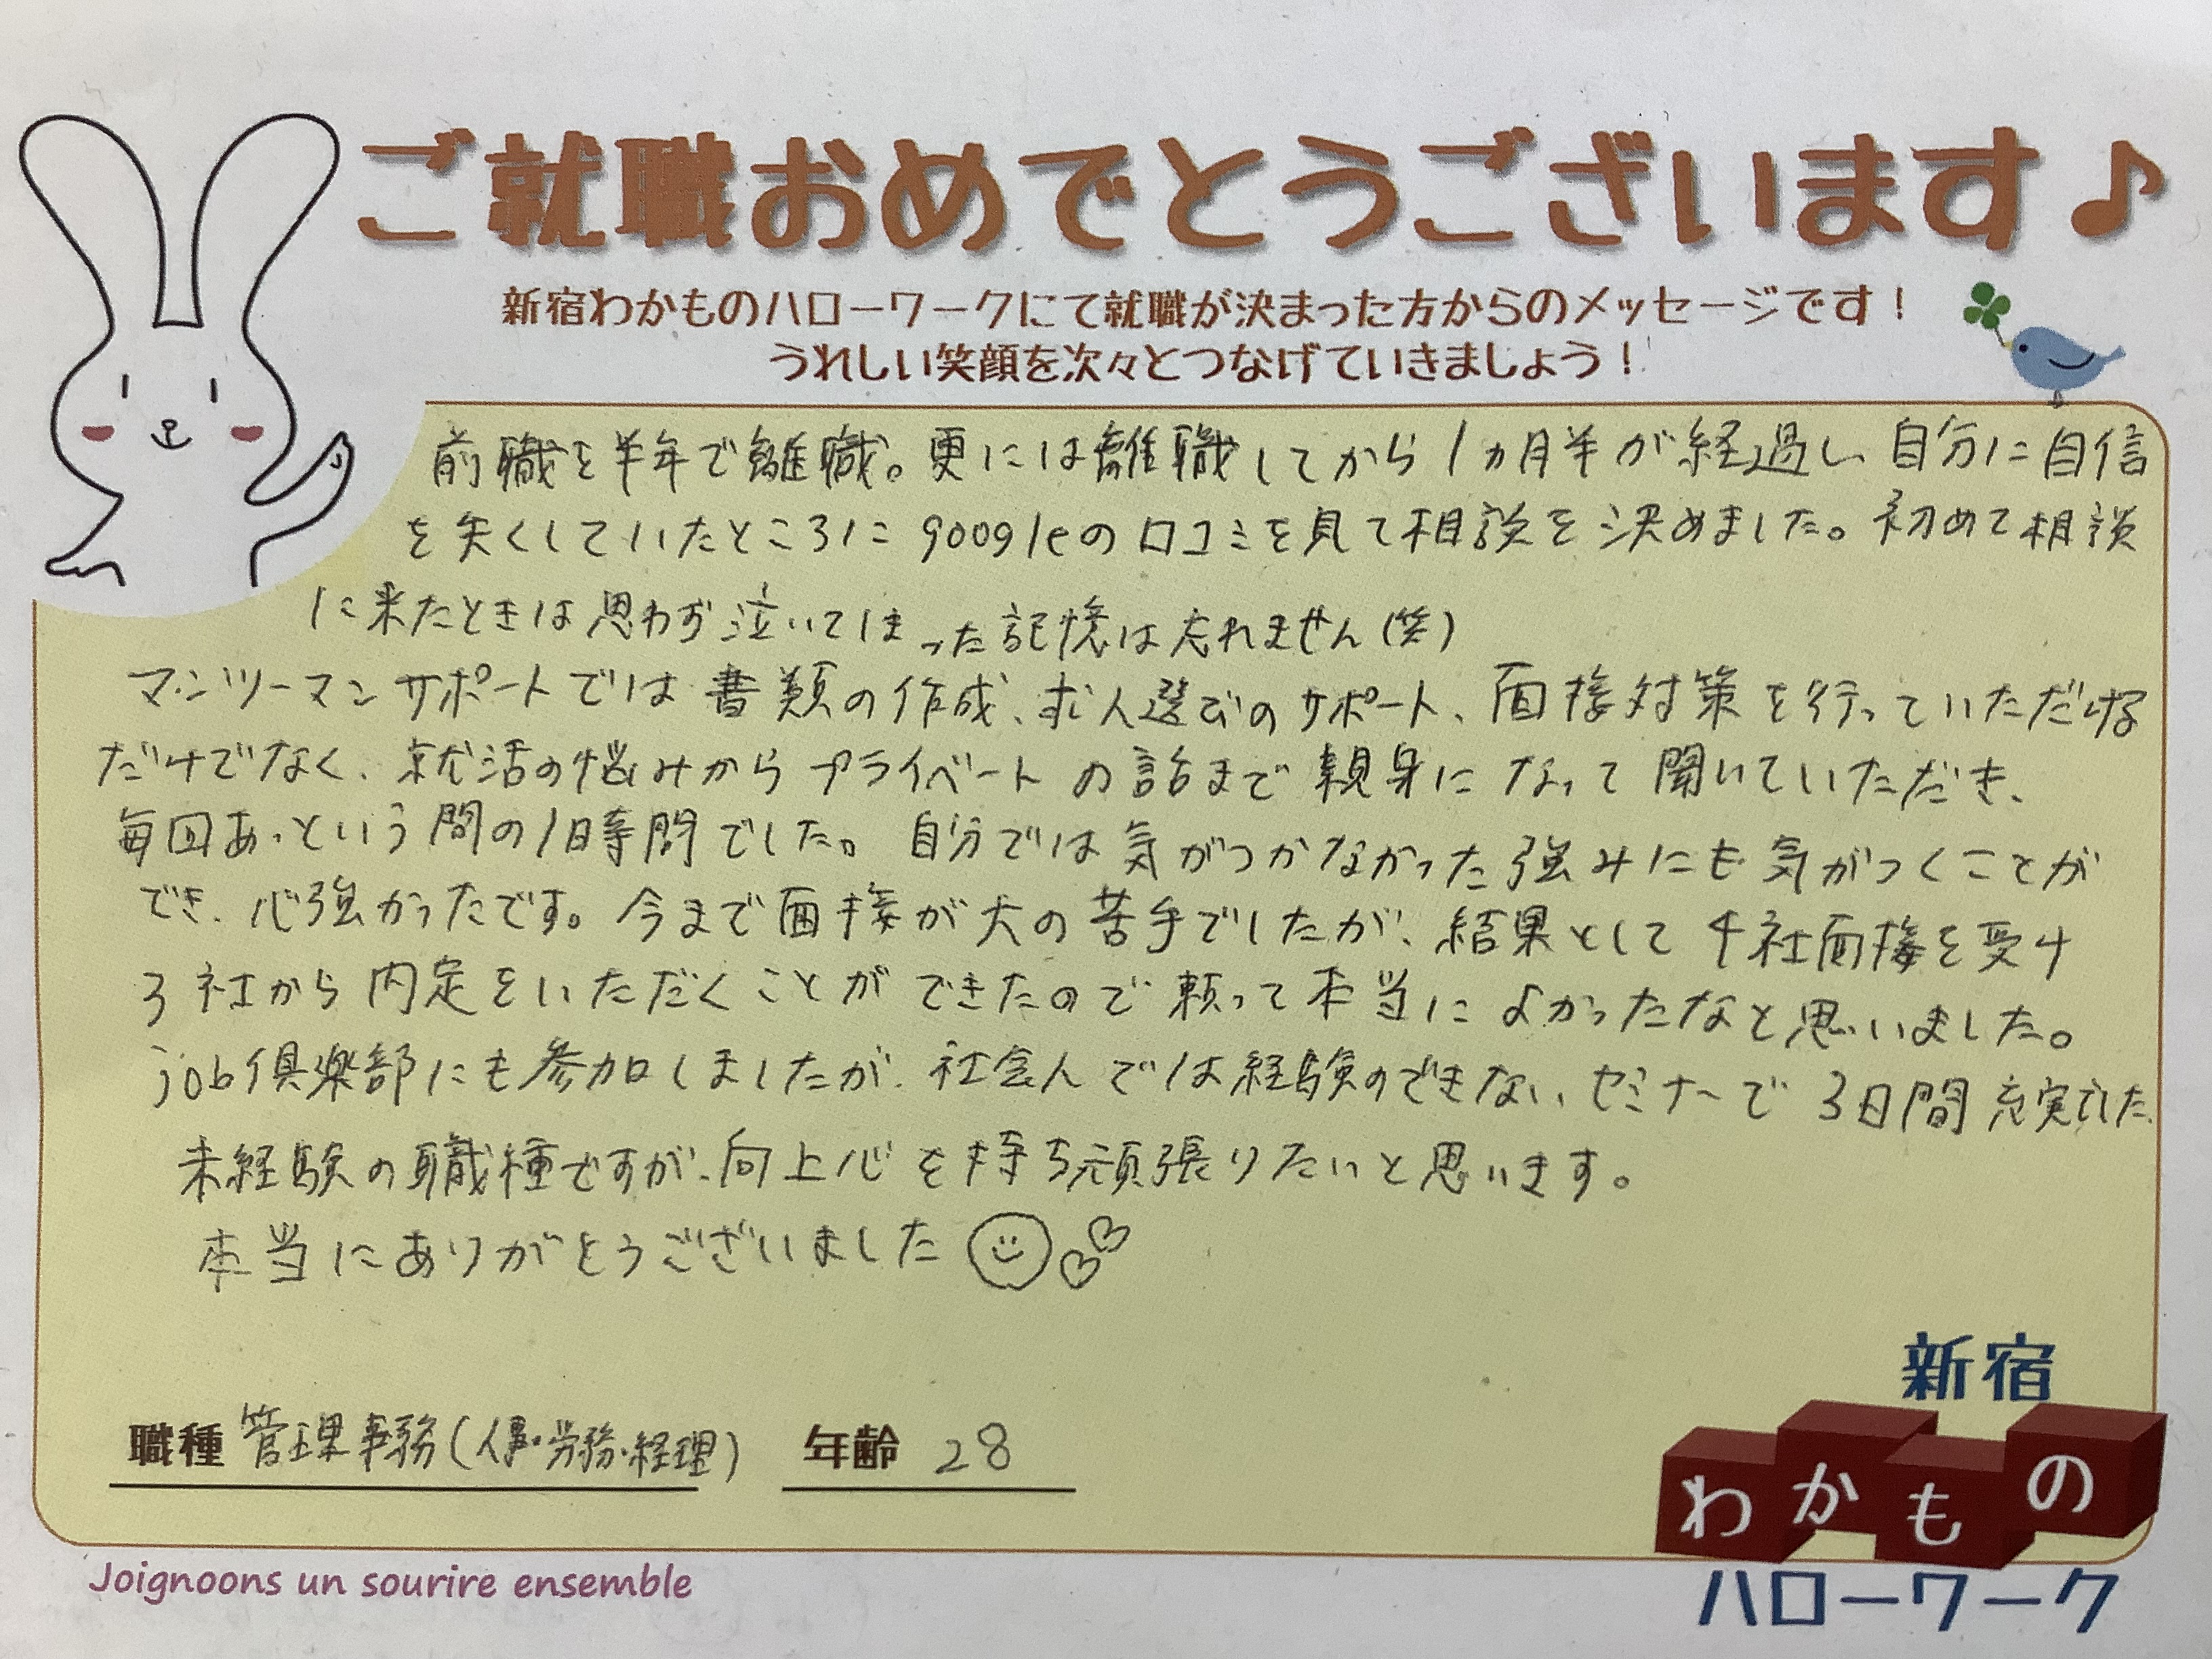 ご就職おめでとうございます♪
新宿わかものハローワークにて就職が決まった方からのメッセージです！
うれしい笑顔を次々とつなげていきましょう！
前職を半年で離職。更には離職してから1ヵ月半が経過し、自分に自信
を失くしていたところにgoogleの口コミを見て相談を決めました。初めて相談
に来たときは思わず泣いてしまった記憶は忘れません(笑)
マンツーマンサポートでは書類の作成、求人選びのサポート、面接対策を行っていただける
だけでなく、就活の悩みからプライベートの話まで親身になって聞いていただき、
毎回あっという間の1時間でした。自分では気がつかなかった強みにも気がつくことが
でき、心強かったです。今まで面接が大の苦手でしたが、結果として4社面接を受け
3社から内定をいただくことができたので頼って本当によかったなと思いました。
job倶楽部にも参加しましたが、社会人では経験のできないセミナーで3日間充実でした。
未経験の職種ですが、向上心を持ち頑張りたいと思います。
本当にありがとうございました
職種 管理事務(人事・労務・経理) 年齢 28
新宿
わかもの
ハローワーク
Joignoons un sourire ensemble